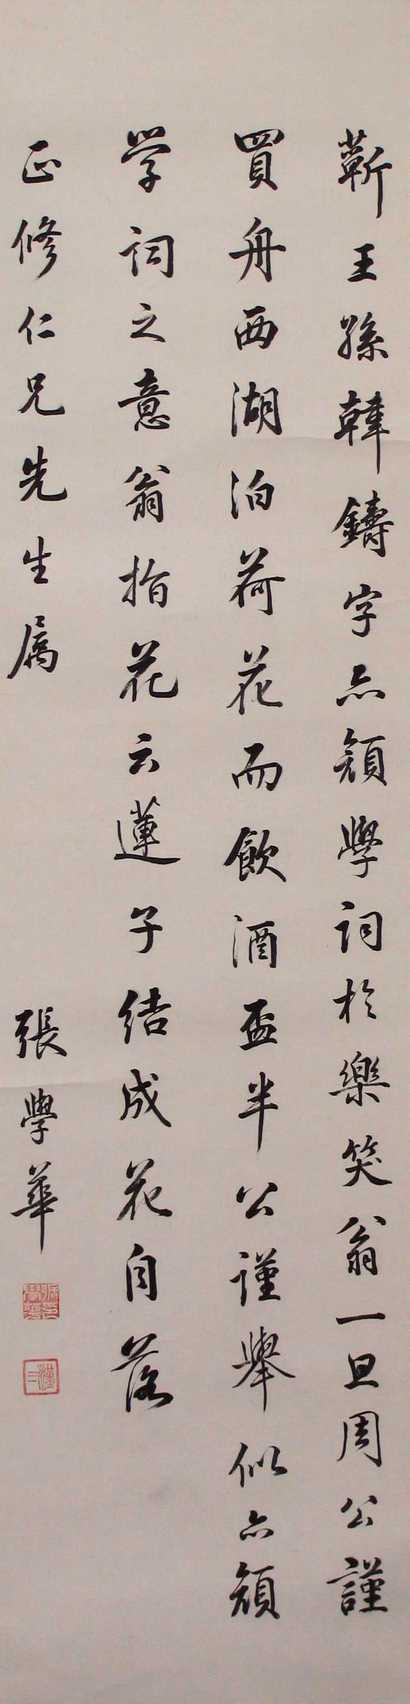 蘄王孫韓鑄字亦顏學詞於樂笑翁一旦周公謹
買舟西湖泊荷花而飲酒盃半公謹舉似亦顏
学詞之意翁指花云蓮子结成花自落
正修仁兄先生属
張學華